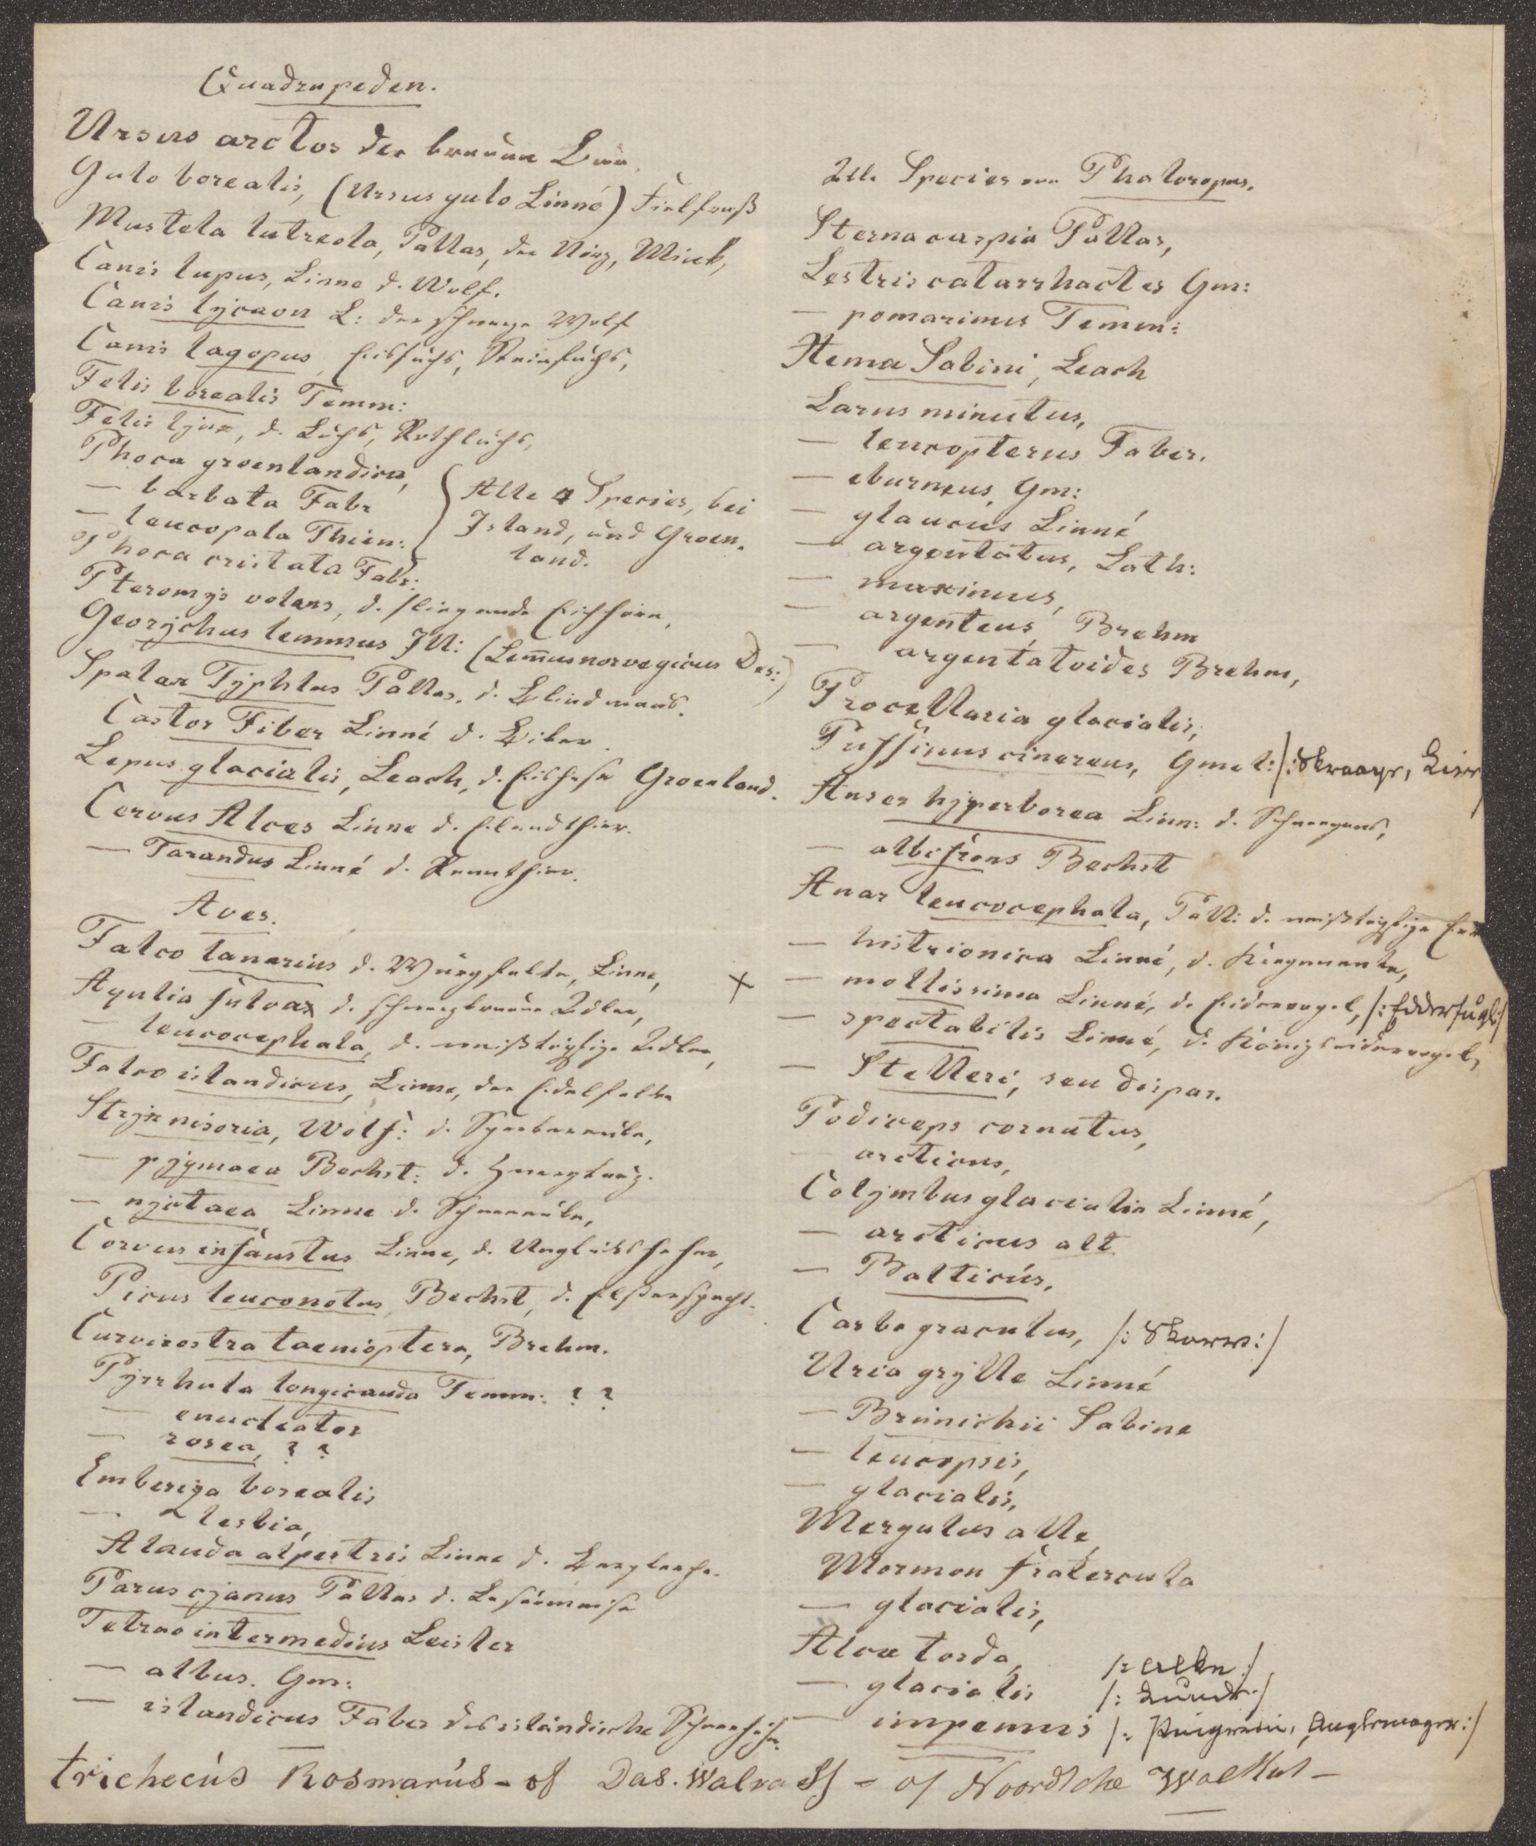 Quadrupeden.
Ursus arctos der braune Bär.
Gulo borealis, (Ursus gulo Linné) Fielfrass
Mustela lutreola, Pallas, der Nörz, Minck,
Canis lupus, Linne d. Wolf.
Canis lycaon L: der schwarze Wolf
Canis lagopus Eisfuchs, Steinfuchs,
Felis borealis Temm:
Felis lynx, d. Luchs, Rothluchs,
Phoca groenlandica,
— barbata Fabr
— leucopala Thien:
Phoca cristata Fabr:
Alle 4 Species, bei
Island, und Groen,
land.
Pteromys volans, d. fliegende Eichhörn,
Georychus lemmus Ill: (Lem̄us norvegicus Des:)
Spalax Typhlus Pallas. d. Blindmaus.
Castor Fiber Linné d. Biber.
Lepus glacialis, Leach, d. Eishase Groenland.
Cervus Alces Linne d. Elendthier.
— Tarandus Linné d. Rennthier.
Aves.
Falco lanarius d. Würgfalke, Linne,
Aquila fulva d. schwarzbraune Adler,
— leucocephala, d. weißköpfige Adler,
Falco islandicus, Linne, der Edelfalke
Stryx nisoria, Wolf: d. Sperbereule,
— pygmaea Bechst: d. Zwergkauz.
— nyctaea Linne d. Schneeeule,
Corvus infaustus Linne, d. Unglücksheher,
Picus leuconotus, Bechst, d. Elsterspecht.
Curvirostra taenioptera, Brehm.
Pyrrhula longicauda Temm: ? ?
— enucleator
— rosea, ? ?
Emberiza borealis
— lesbia,
Alauda alpestris Linne d. Berglerche.
Parus cyanus Pallas d. Lasurmeise
Tetrao intermedius Leisler
— albus. Gm:
— islandicus Faber das isländische Schneehuhn.
Alle Species von Phalaropus.
Sterna caspia Pallas,
Lestris catarrhactes Gm:
— pomarinus Temm:
Xema Sabini, Leach
Larus minutus,
— leucopterus Faber.
— eburneus, Gm:
— glaucus Linné
— argentatus, Lath:
— maximus,
— argenteus, Brehm
— argentatoides Brehm,
Procellaria glacialis,
Puffinus cinereus, Gmel: /: Skraape, Lire
Anser hyperborea Linn: d. Schneegans,
— albifrons Bechst
Anas leucocephala, Pall: d. weißköpfige
— histrionica Linné, d. Kragenente,
× — mollissima Linné, d. Eidervogel, /: Edderfugl:/
— spectabilis Linné, d. Königseidervogel,
— Stelleri, seu dispar.
Podiceps cornutus,
— arcticus,
Colymbus glacialis Linné,
— arcticus alt.
— Balticus.
Carbo graculus, /: Skarv:/
Uria grylle Linné
— Brünichii Sabine
— leucopsis,
— glacialis,
Mergulus alle,
Mormon fratercula
— glacialis,
Alca torda, /: Alke :/
— glacialis /: Lunde :/
— impennis /: Pingvin, Anglemager:/
trichecús Rosmarús – of Das. Walross – of Noordsche